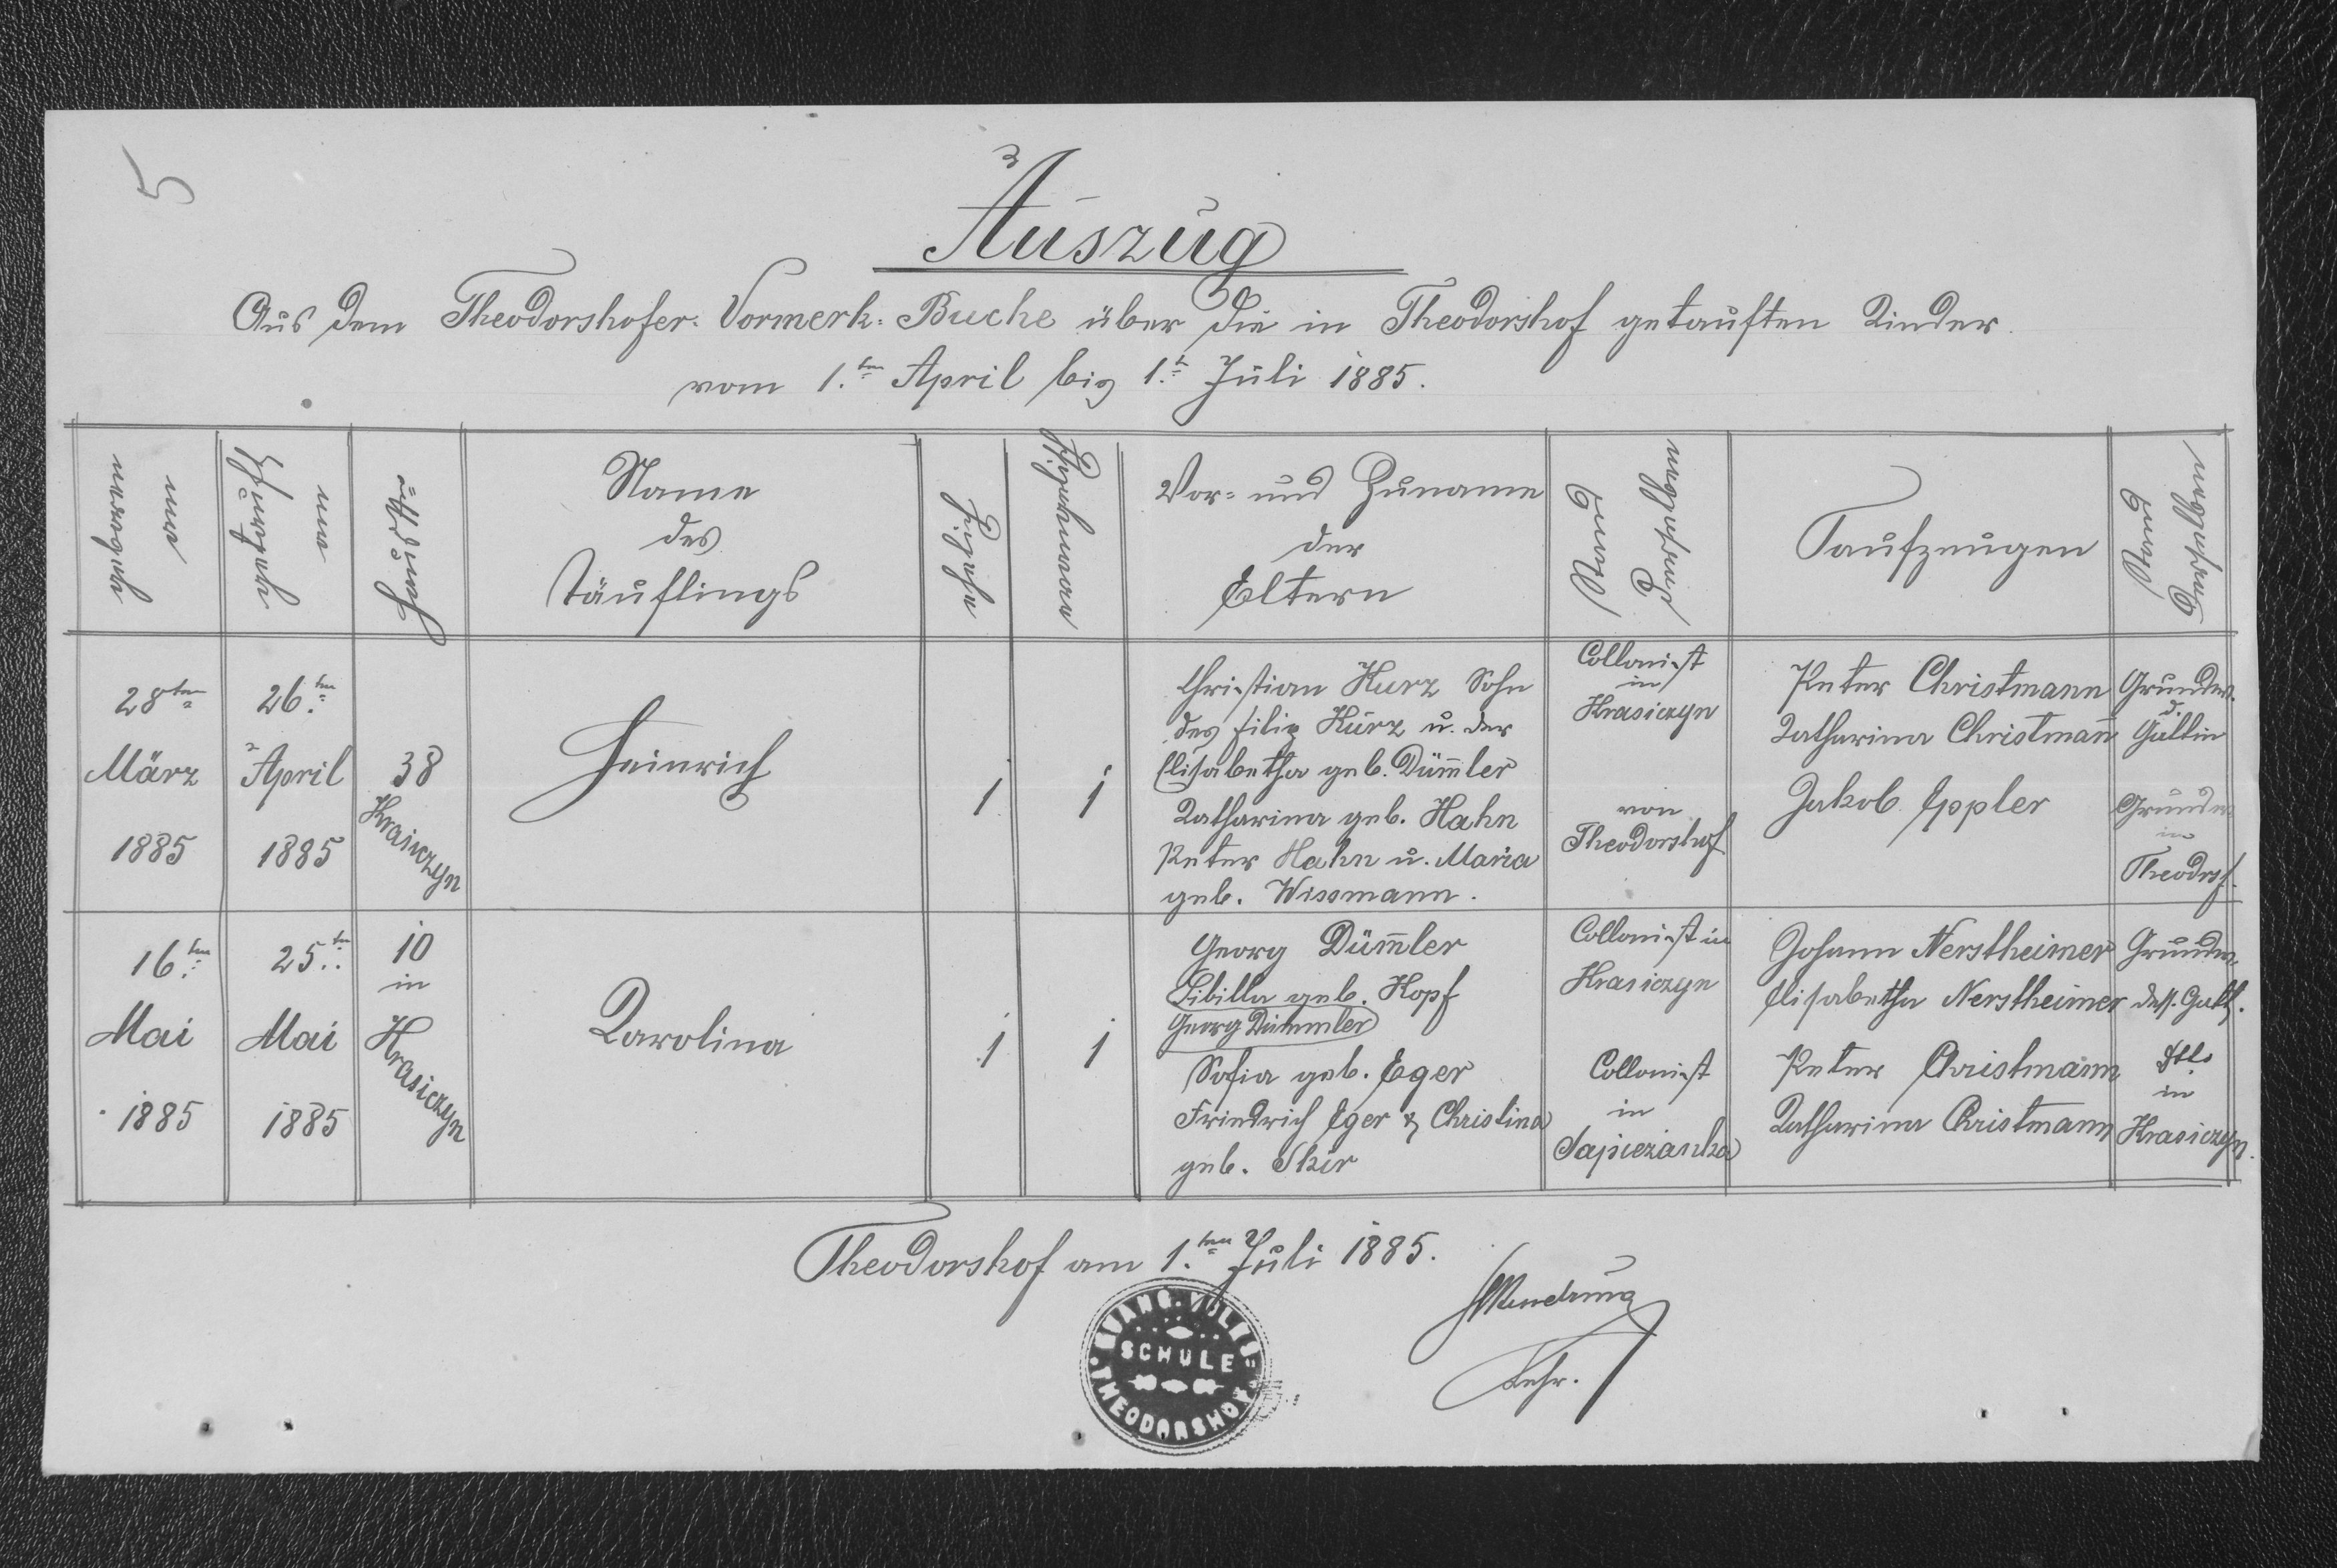 5
Auszug
Aus dem Theodorshofer: Vormerk: Buche über die in Theodorshof getauften Kinder.
vom 1.ten April bis 1.t Juli 1885.
geboren
am
getauft
am
Haus
Name
des
Täuflings
Vor= und Zuname
der
Eltern
Stand
Taufzeugen
Stand
28ten
März
1885
26.ten
April
1885
38
Krasiczyn
Heinrich
1
1
Christian Kurz Sohn
des Filip Kurz u. der
Elisabetha geb. Düm̄ler
Katharina geb. Hahn
Peter Hahn u. Maria
geb. Wissmann.
Collonist
in
Krasiczyn
von
Theodorshof
Peter Christmann
Katharina Christman̄
Jakob Eppler
Grundw.
d.
Gattin
Grundw.
in
Theodrsf.
16.ten
Mai
1885
25.ten
Mai
1885
10
in
Krasiczyn
Karolina
1
1
Georg Düm̄ler
Sibilla geb. Kopf
Georg Dümmler
Sofia geb. Eger
Friedrich Eger & Christina
geb. Skir
Collonist in
Krasiczyn
Collonist
in
Sapiezanka
Johann Nerstheimer
Elisabetha Nerstheimer
Peter Christmann
Katharina Christmann
Grundw.
dess. Gatt.
in
Krasiczyn.
Theodorshof am 1.ten Juli 1885.
Lehr.
EVANG. VOLKS=
SCHULE
THEODORSHOF